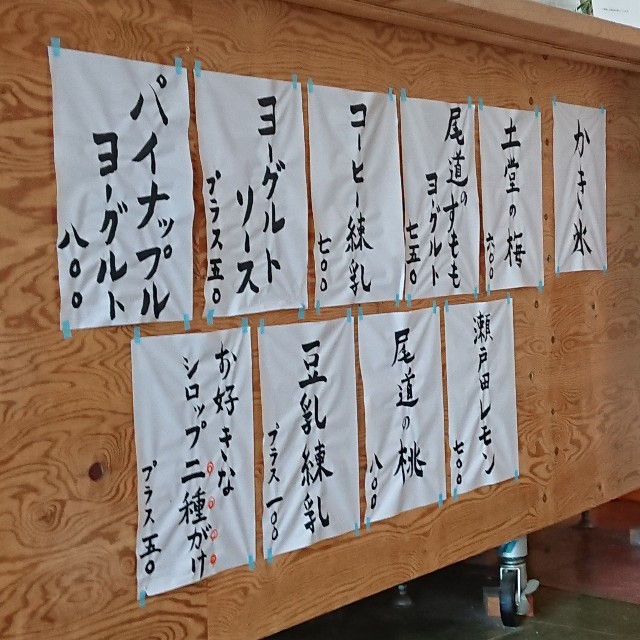 かき氷
土堂の梅
六〇〇
尾道のすもも
ヨーグルト
七五〇
コーヒー練乳
七〇〇
ヨーグルト
ソース
プラス五〇
パイナップル
ヨーグルト
八〇〇
瀬戸田レモン
七〇〇
尾道の桃
八〇〇
豆乳練乳
プラス一〇〇
お好きな
シロップ二種がけ
プラス五〇